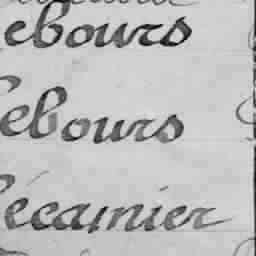 ebours
ebours
écamier